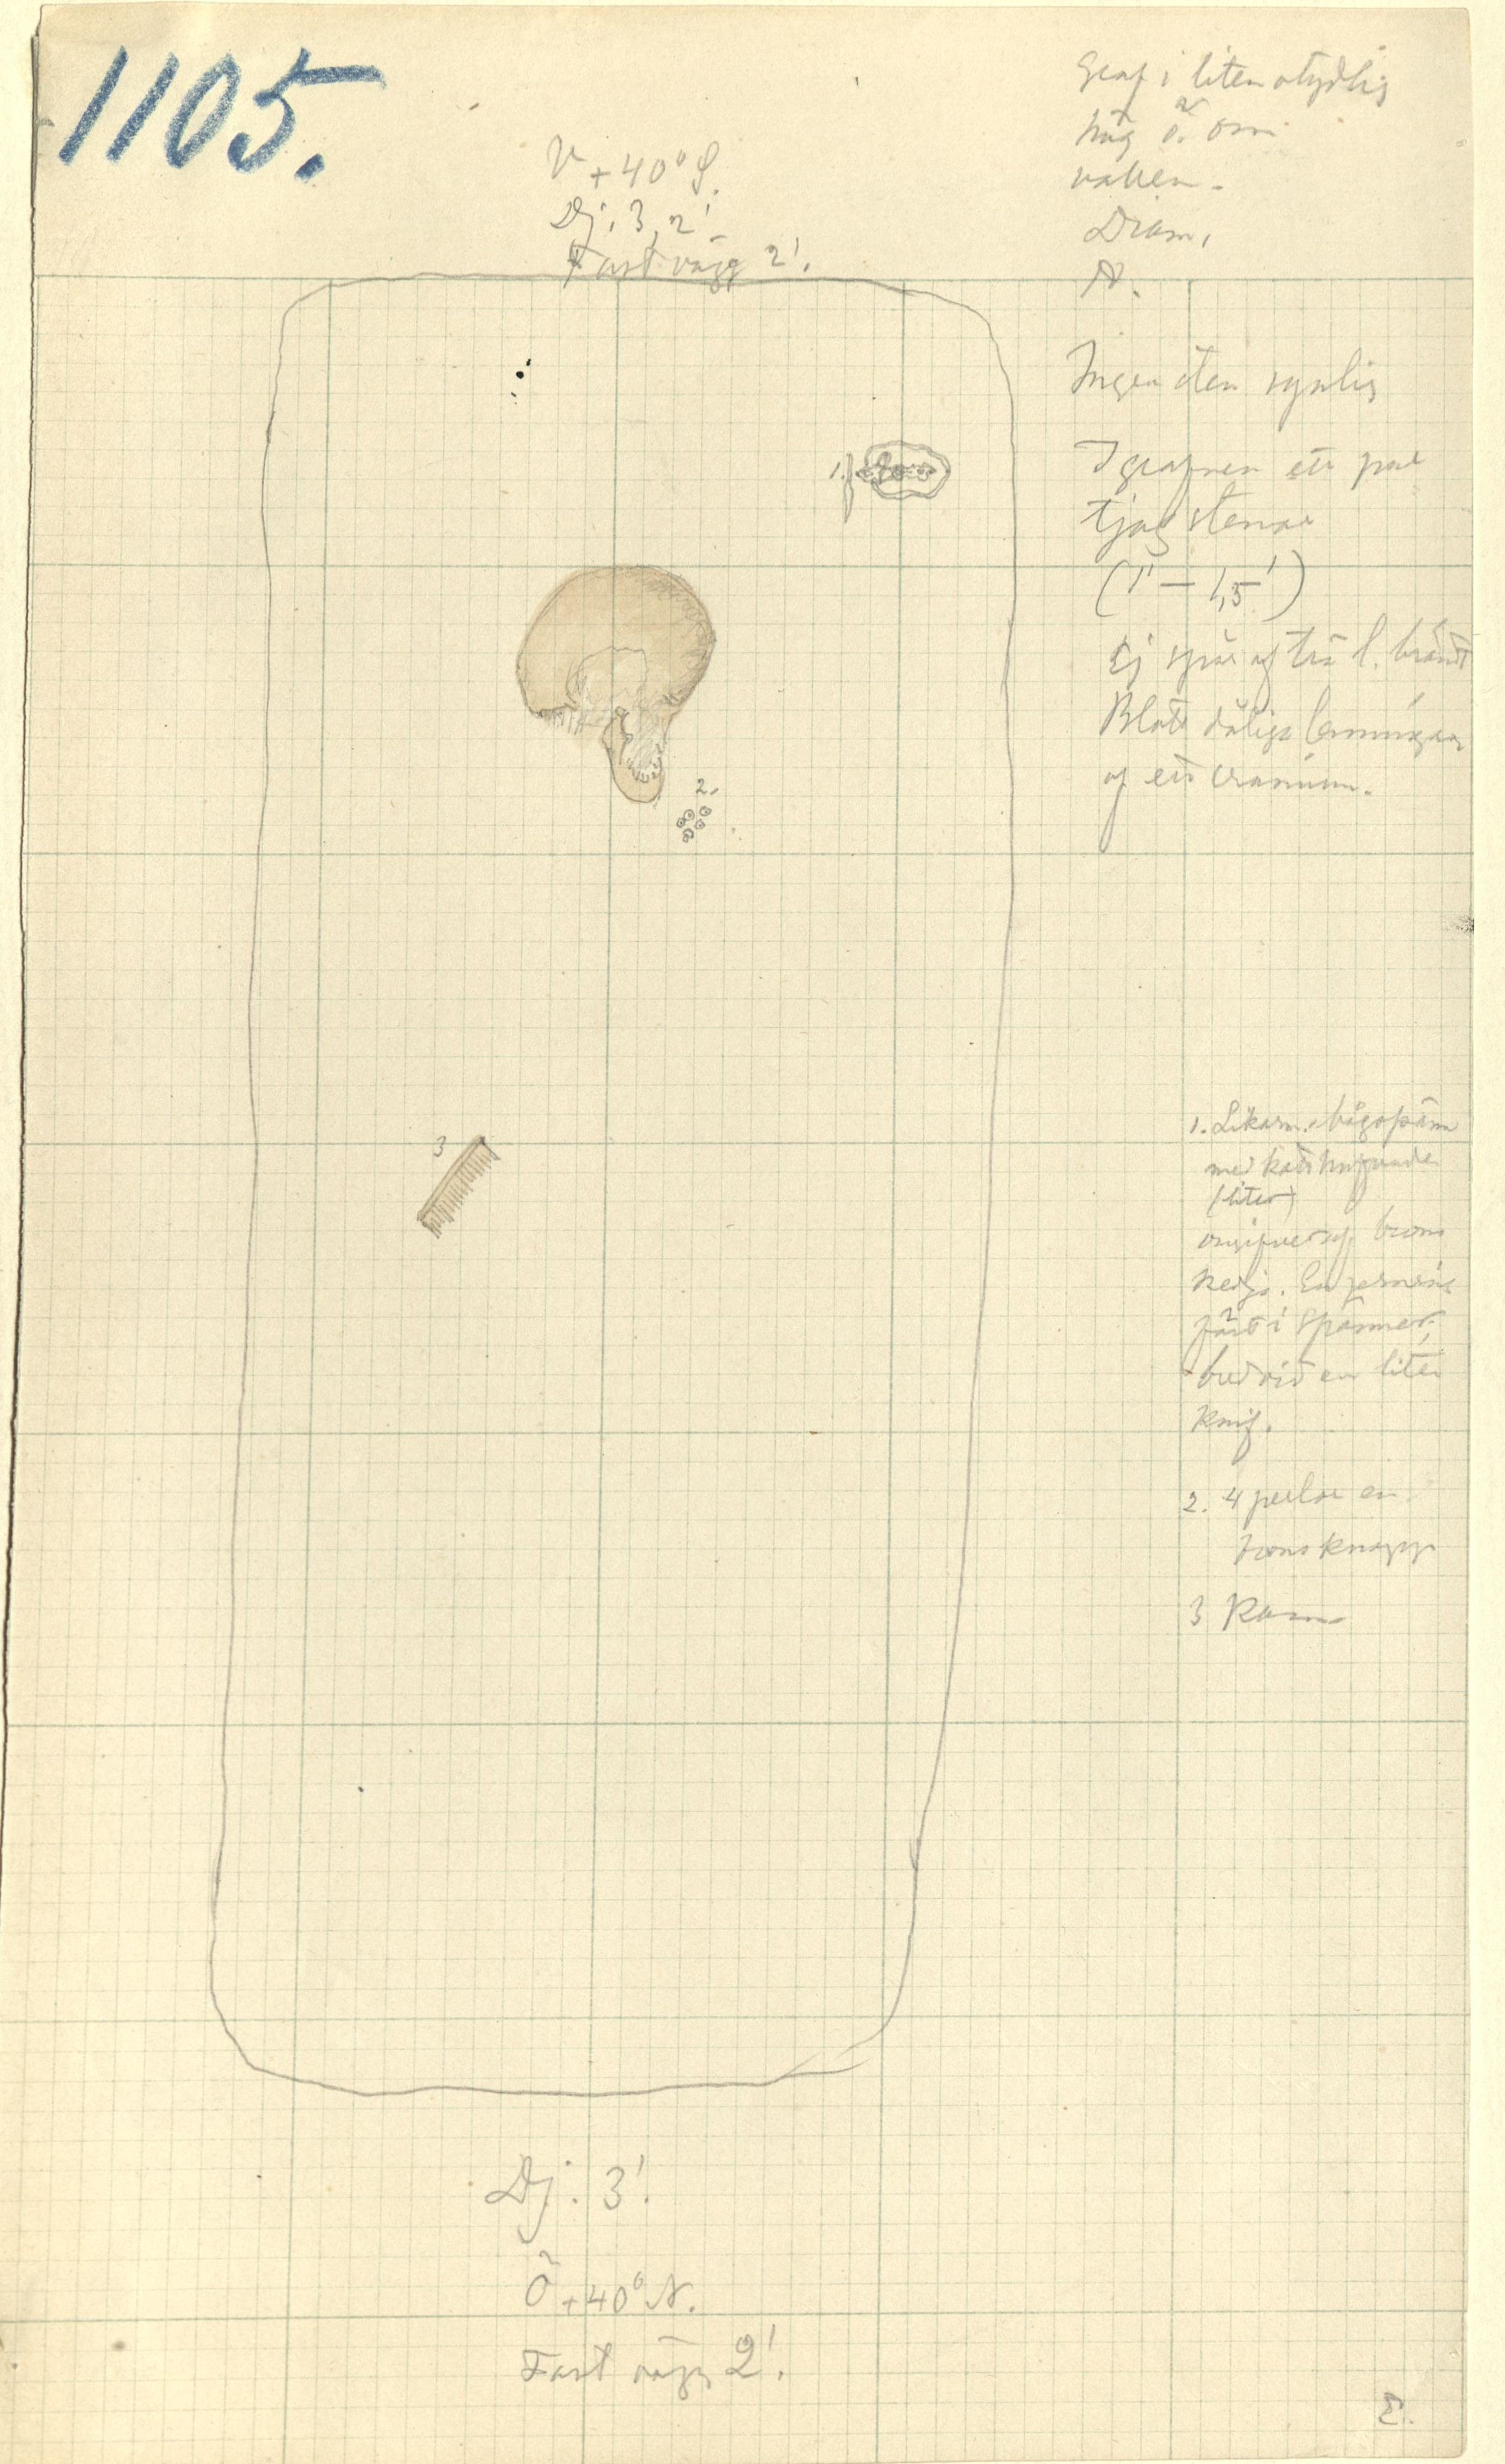 1105.
V+40° S.
Dj. 3,2'
Fast vägg 2'.
Graf i liten otydlig
hög ö. om
vallen.
Diam.
N.
Ingen sten synlig
I grafven ett par
stenar
(1' – 1,5')
Ej spår af trä l. brändt
Blott dåliga lemningar
af ett cranium.
1.
2.
3
1. Likarm. bågspänne
med
(liten)
omgifvet af brons
kedja. En
fäst i spännet,
bredvid en liten
knif.
2. 4 perlor en
bronsknapp
3 Kam
Dj. 3'.
Ö+40° N.
Fast vägg 2'.